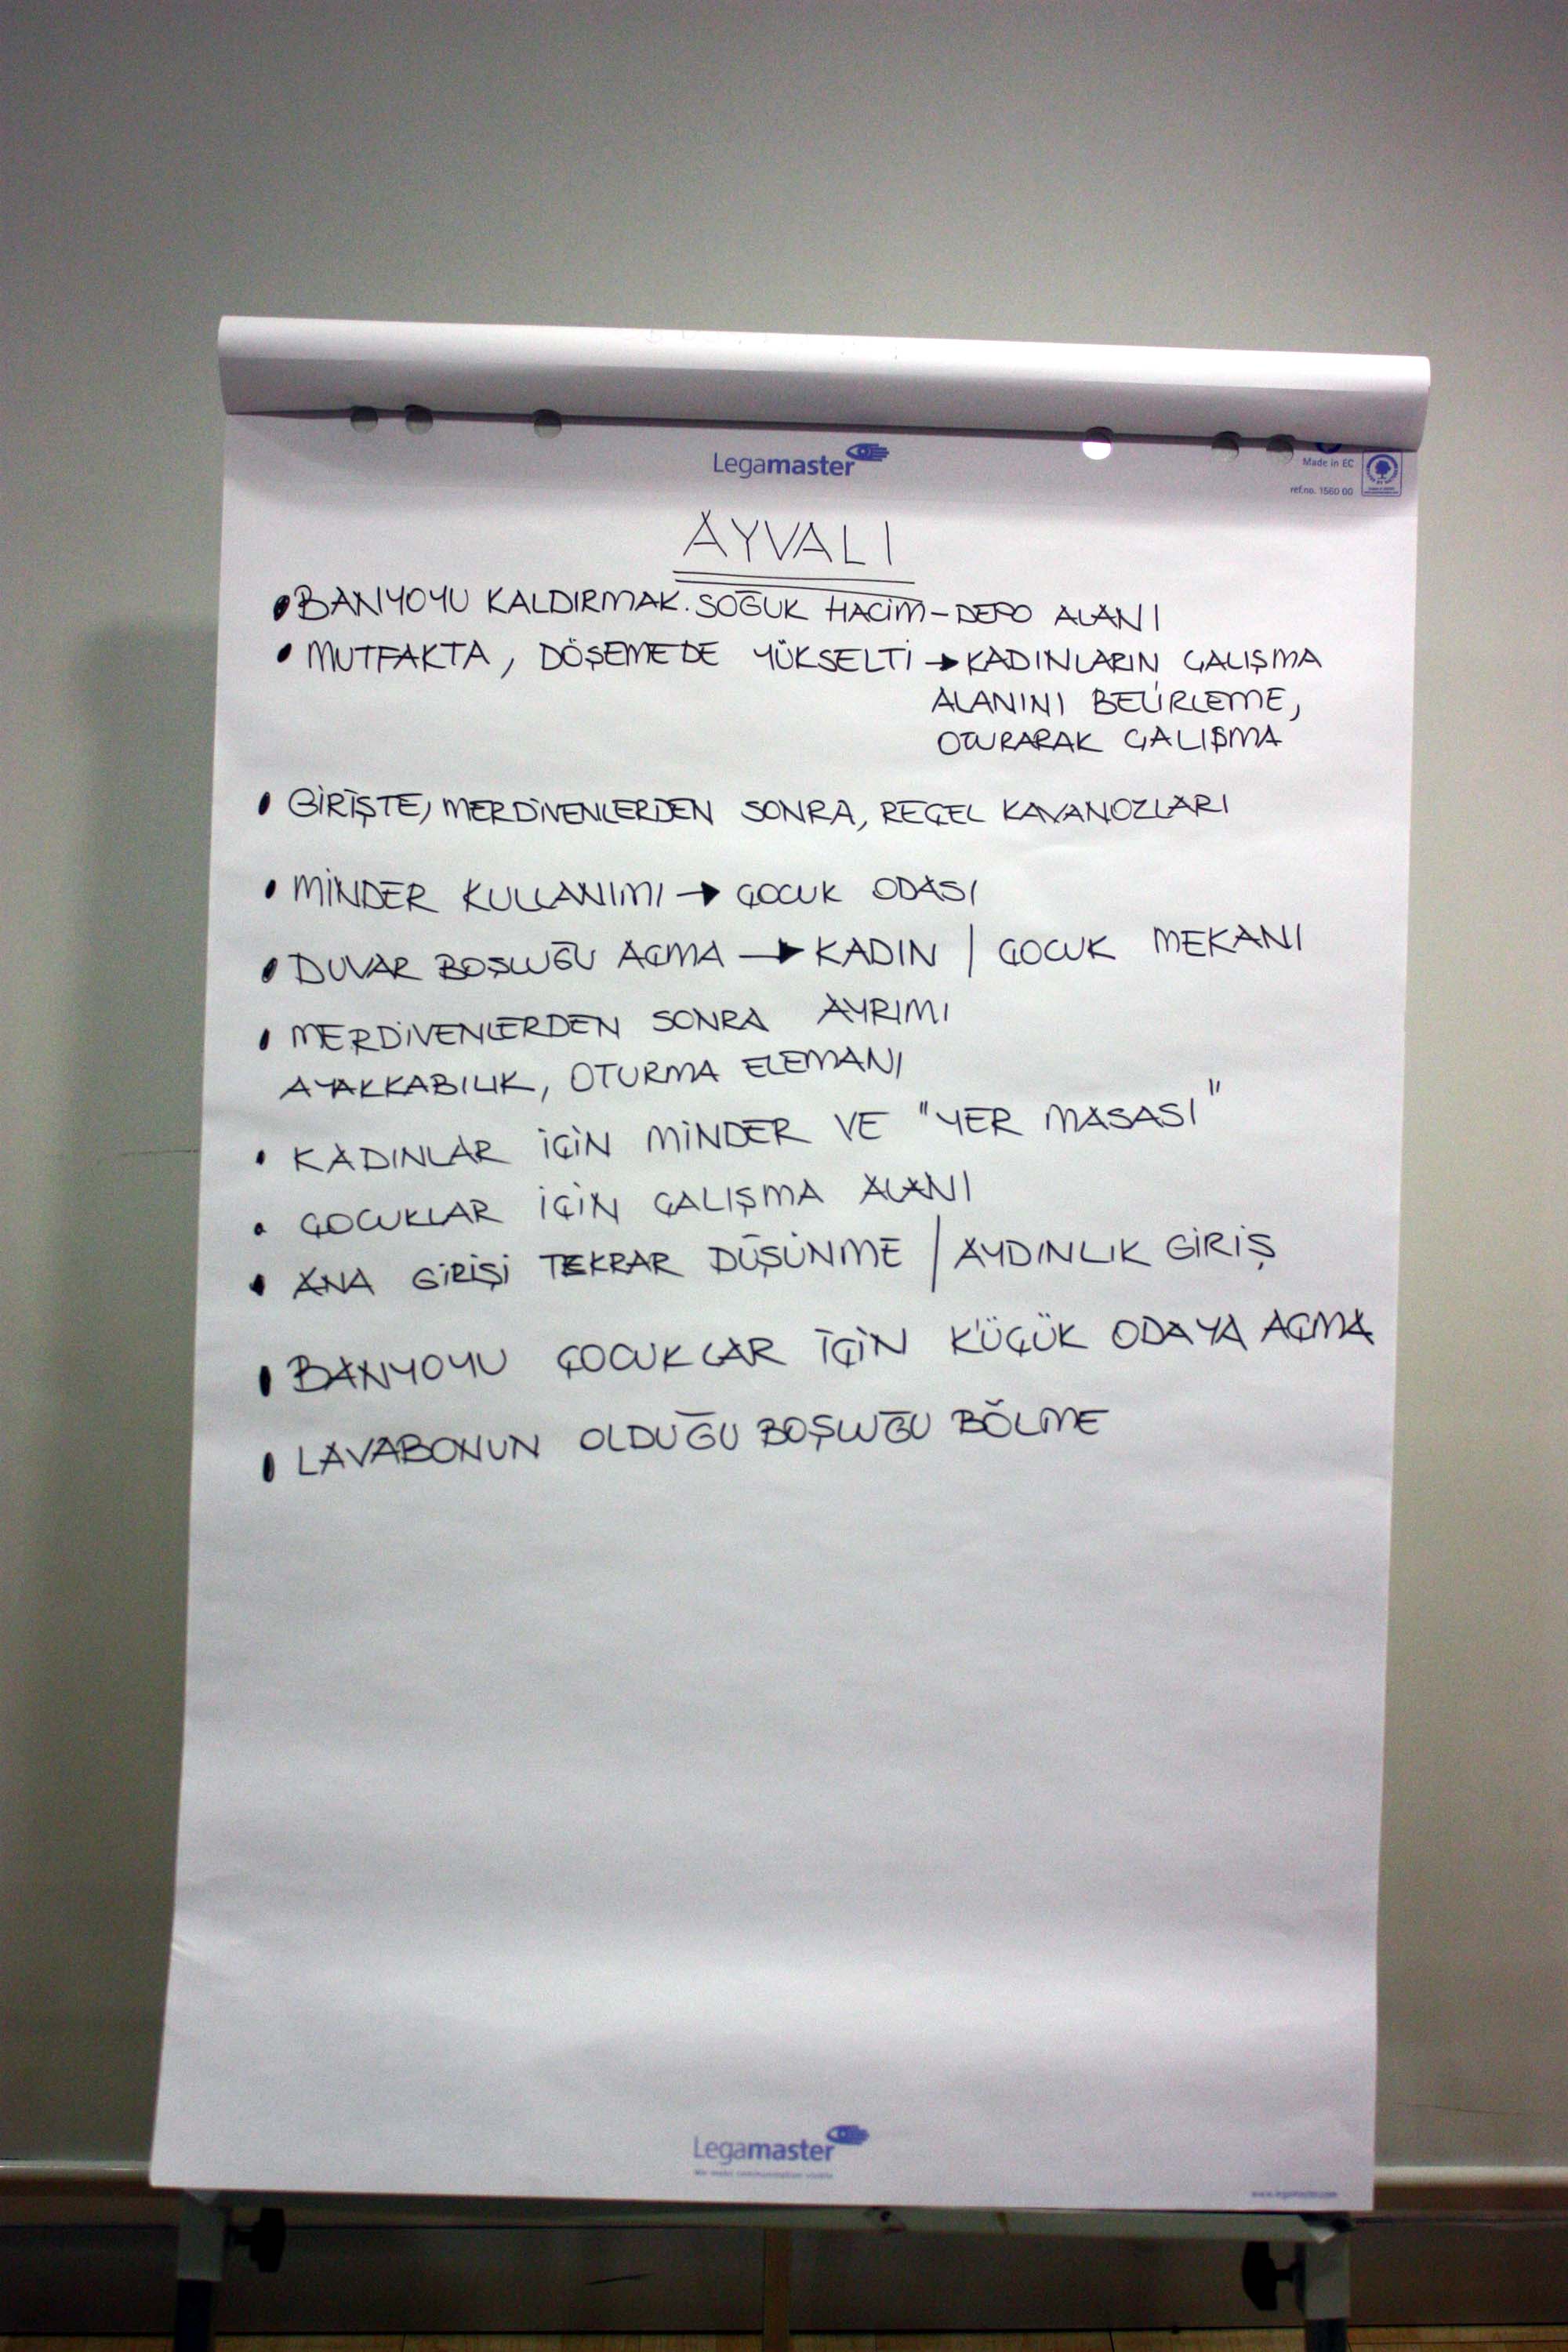 Legamaster
Made in EC
ref.no. 1560 00
AYVALI
• BANYOYU KALDIRMAK. SOĞUK HACİM - DEPO ALANI
• MUTFAKTA, DÖŞEMEDE YÜKSELTİ → KADINLARIN ÇALIŞMA
ALANINI BELİRLEME,
OTURARAK ÇALIŞMA
• GİRİŞTE, MERDİVENLERDEN SONRA, REÇEL KAVANOZLARI
• MİNDER KULLANIMI → ÇOCUK ODASI
• DUVAR BOŞLUĞU AÇMA → KADIN / ÇOCUK MEKANI
• MERDİVENLERDEN SONRA AYRIMI
AYAKKABILIK, OTURMA ELEMANI
• KADINLAR İÇİN MİNDER VE "YER MASASI"
• ÇOCUKLAR İÇİN ÇALIŞMA ALANI
• ANA GİRİŞİ TEKRAR DÜŞÜNME / AYDINLIK GİRİŞ
• BANYOYU ÇOCUKLAR İÇİN KÜÇÜK ODAYA AÇMA
• LAVABONUN OLDUĞU BOŞLUĞU BÖLME
Legamaster